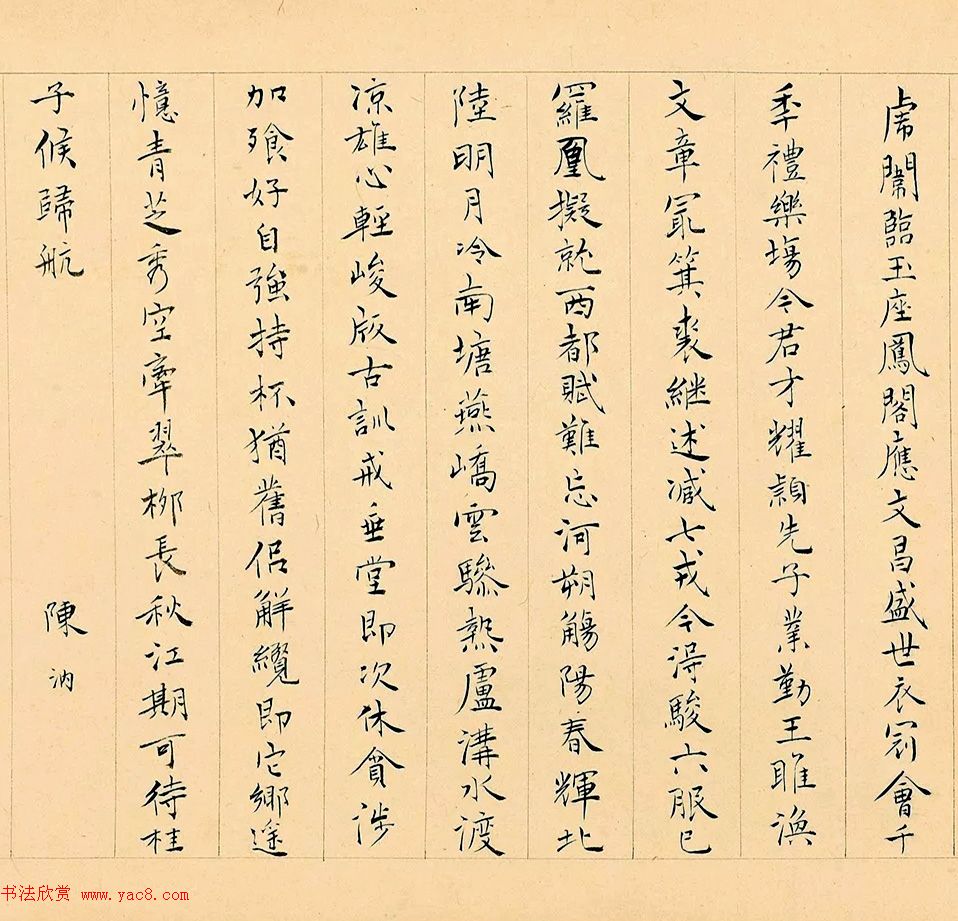 虎闈臨玉座鳳閣應文昌盛世衣冠會千
季禮樂場令君才耀穎先子業勤王雎渙
文章冣箕裘継述減七戎今淂駿六服已
羅凰擬就西都賦難忘河朔觴陽春輝北
陸明月冷南塘燕嶠雲驂熱盧溝水渡
凉雄心輕峻阪古訓戒垂堂即次休貪涉
加飱好自強持杯猶舊侶觧纜即它鄉途
憶青芝秀空牽翠栁長秋江期可待桂
子候歸航
陳汭
书法欣赏 www.yac8.com